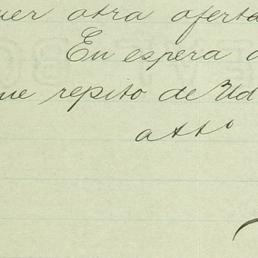 uer otra oferta
En espera d
ue repito de Ud
atto